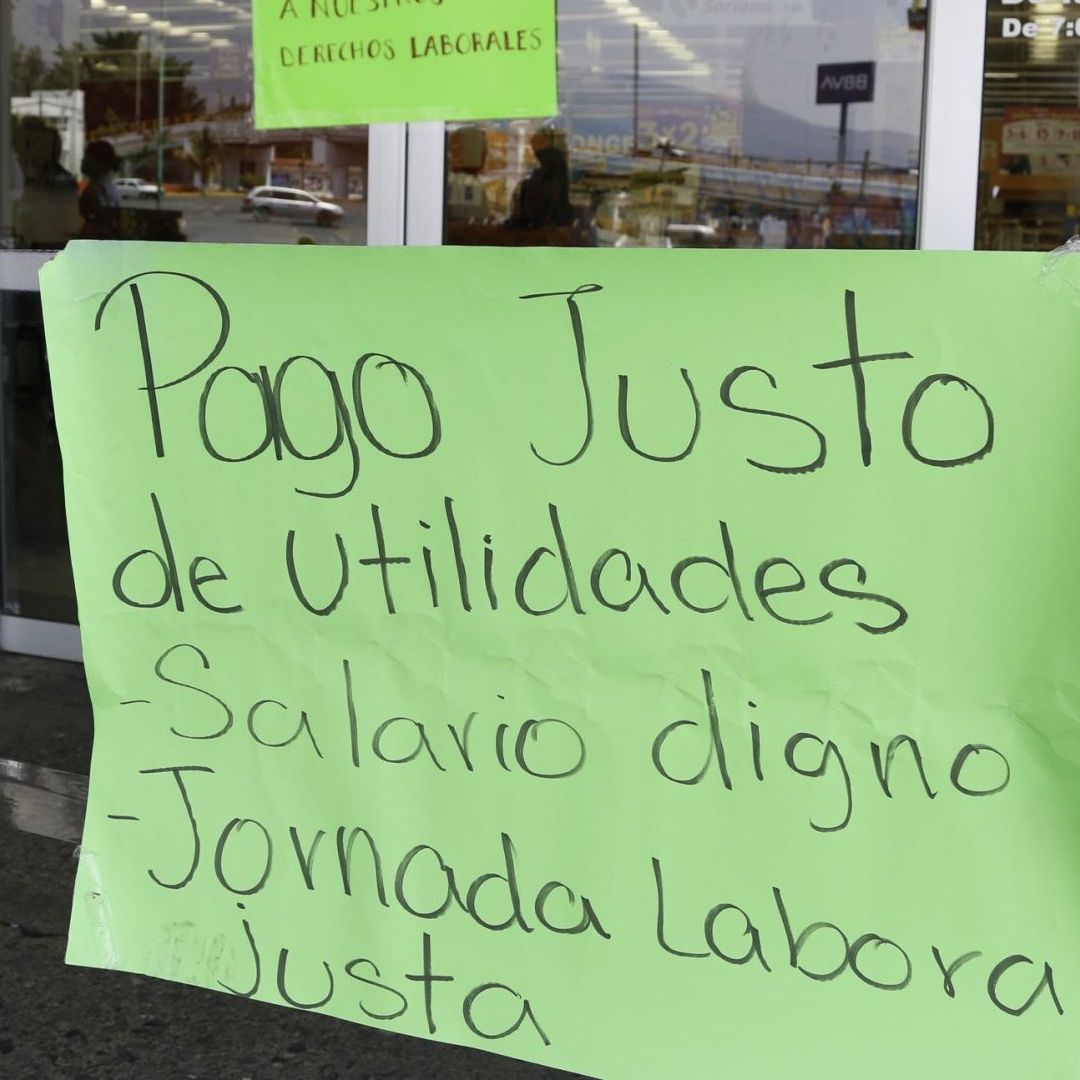 A NUESTROS
DERECHOS LABORALES
Soriana
BBVA
De 7:0
3x2
Pago Justo
de utilidades
-Salario digno
-Jornada Labora
justa